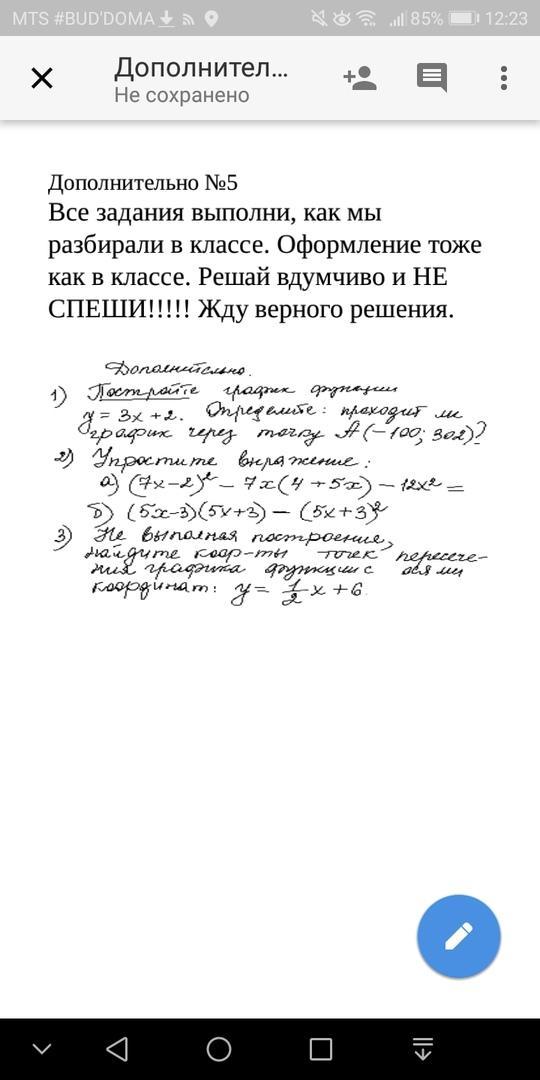 MTS #BUD'DOMA 85% 12:23
Дополнител...
Не сохранено
Дополнительно №5
Все задания выполни, как мы
разбирали в классе. Оформление тоже
как в классе. Решай вдумчиво и НЕ
СПЕШИ!!!!! Жду верного решения.
Дополнительно.
1) Постройте график функции
y = 3x + 2. Определите: проходит ли
график через точку A (-100; 302)?
2) Упростите выражение:
а) (7x-2)² - 7x(4+5x) - 12x² =
б) (5x-3)(5x+3) - (5x+3)²
3) Не выполняя построение,
найдите коор-ты точек пересече-
ния графика функции с осями
координат: y = 1/2 x + 6.